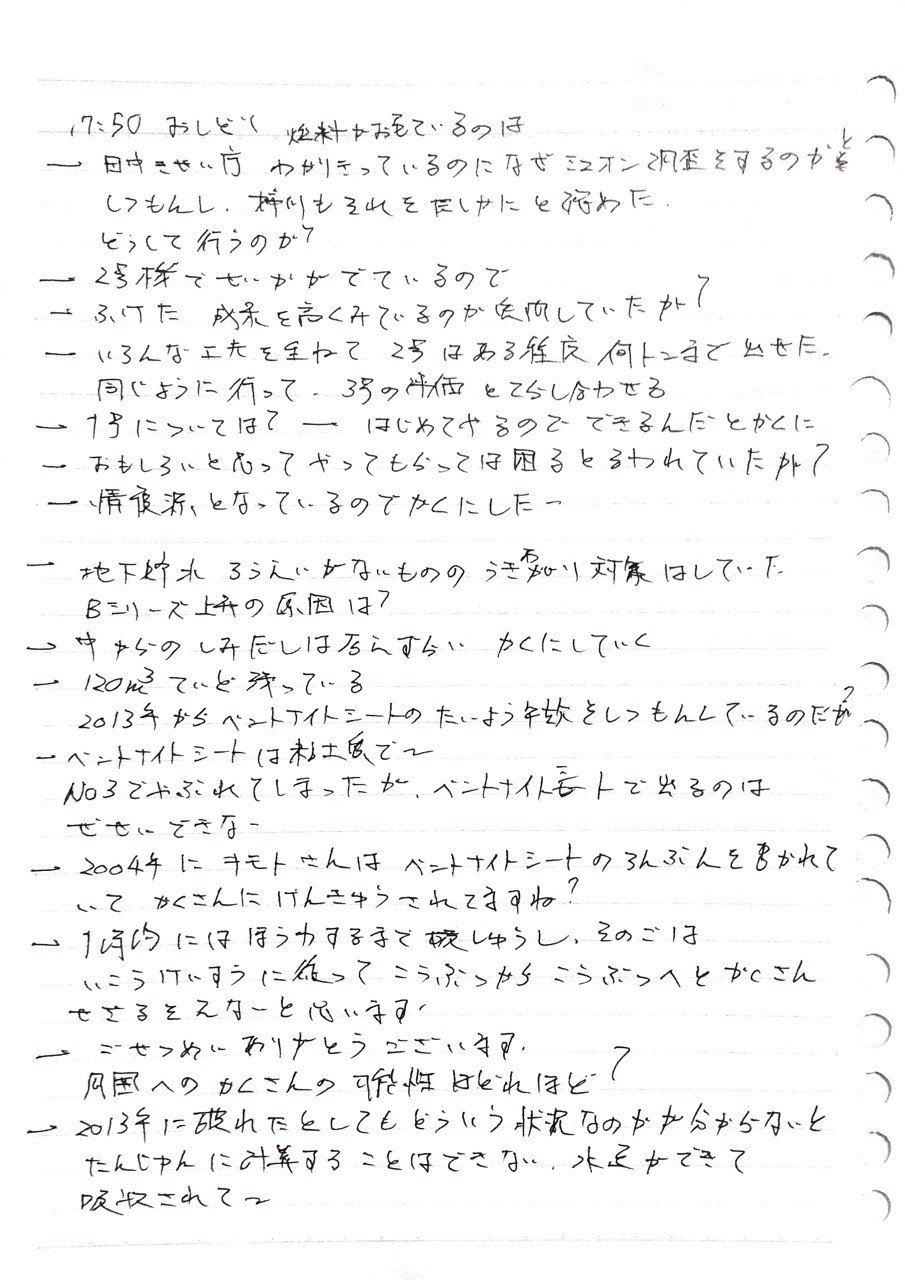 17:50 おしどり 燃料がおちているのは
― 田中きせい庁 わかりきっているのになぜミュオン調査をするのかと
しつもんし、姉川もそれをたしかにと認めた.
どうして行うのか?
― 2号機でせいかがでているので
― ふけた 成果を高くみているのか質問していたが?
― いろんな工夫を重ねて 2号はある程度 何トンまで出せた.
同じように行って、3号の評価 とてらし合わせる
― 1号については? ― はじめてやるので できるんだとかくに
― おもしろいと思って やってもらっては困ると言われていたが?
― 情報源となっているのでかくにした―
― 地下貯水 ろうえいがないものの うきあがり 対象はしていた
Bシリーズ上昇の原因は?
― 中からの しみだしは考えずらい かくにしていく
― 120m³ ていど残っている
2013年から ベントナイトシートの たいよう年数をしつもんしているのだが?
― ベントナイトシートは粘土質で〜
No3でやぶれてしまったが、ベントナイトシートで出るのは
ぜせいできな―
― 2004年に キモトさんは ベントナイトシートのろんぶんを書かれて
いて かくさんに けんきゅうされてますね?
― 1時的には ほうわするまで 吸しゅうし、そのごは
いこうけいすうに従って こうぶつから こうぶつへと かくさん
せざるをえなーと思います.
― ごせつめい ありがとう ございます.
周囲への かくさんの 可能性 はどれほど?
― 2013年に破れたとしても どういう 状況なのかが分からないと
たんじゅんに計算する ことはできない. 水道ができて
吸収されて〜